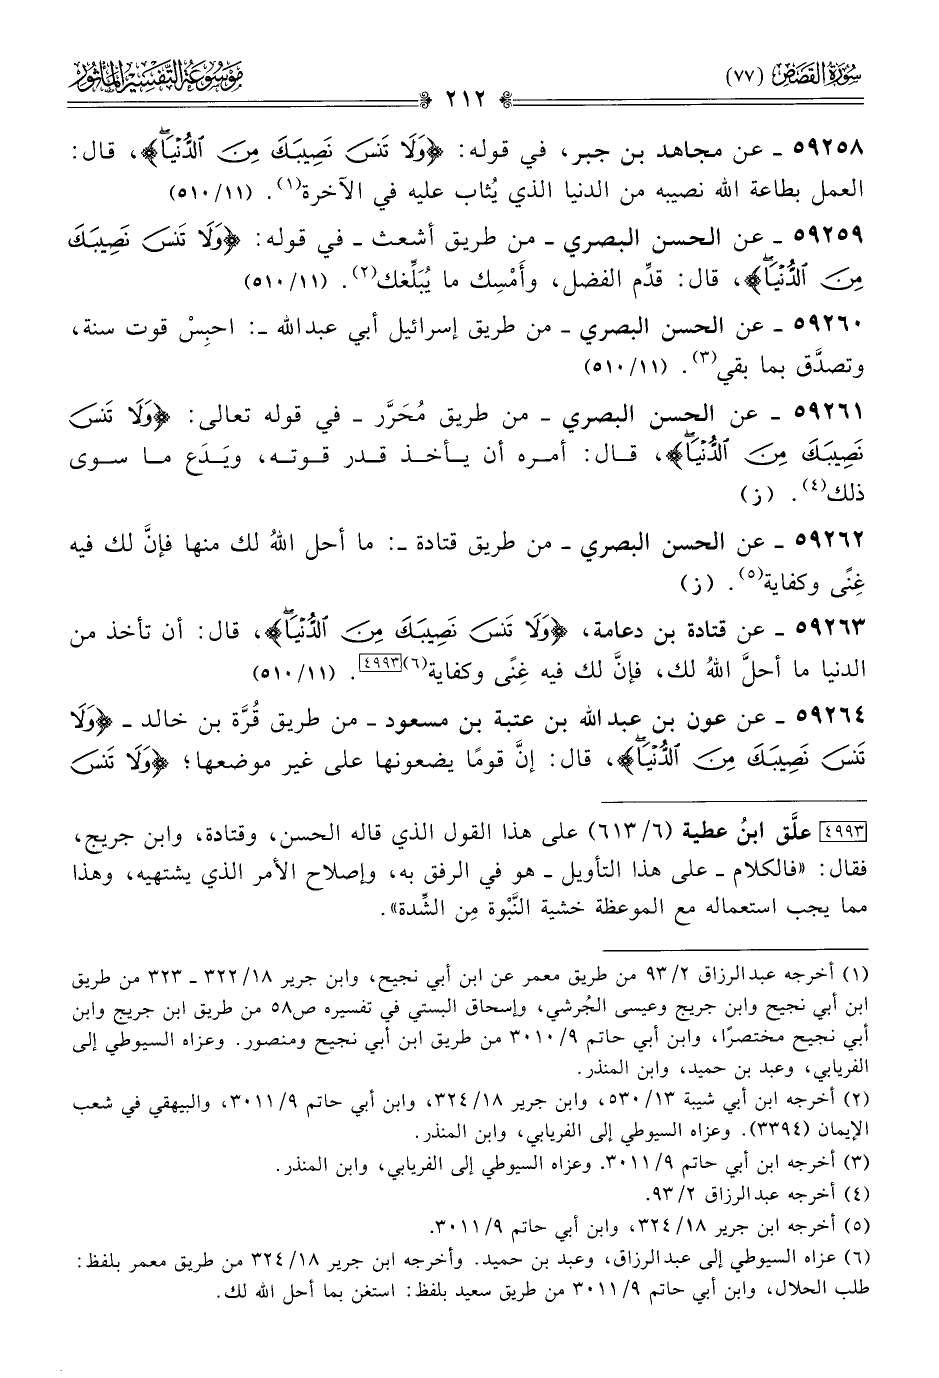 سُورَةُ القَصَصِ (٧٧)
٢١٢
مَوْسُوعَةُ التَّفْسِيرِ المَأْثُورِ
٥٩٢٥٨ ـ عن مجاهد بن جبر، في قوله: ﴿وَلَا تَنسَ نَصِيبَكَ مِنَ ٱلدُّنْيَا﴾، قال:
العمل بطاعة الله نصيبه من الدنيا الذي يُثاب عليه في الآخرة(١). (٥١٠/١١)
٥٩٢٥٩ ـ عن الحسن البصري ـ من طريق أشعث ـ في قوله: ﴿وَلَا تَنسَ نَصِيبَكَ
مِنَ ٱلدُّنْيَا﴾، قال: قدِّم الفضل، وأَمْسِك ما يُبَلِّغك(٢). (٥١٠/١١)
٥٩٢٦٠ ـ عن الحسن البصري ـ من طريق إسرائيل أبي عبدالله ـ: احبِسْ قوت سنة،
وتصدَّق بما بقي(٣). (٥١٠/١١)
٥٩٢٦١ ـ عن الحسن البصري ـ من طريق مُحَرَّر ـ في قوله تعالى: ﴿وَلَا تَنسَ
نَصِيبَكَ مِنَ ٱلدُّنْيَا﴾، قال: أمره أن يأخذ قدر قوته، ويَدَع ما سوى
ذلك(٤). (ز)
٥٩٢٦٢ ـ عن الحسن البصري ـ من طريق قتادة ـ: ما أحل اللهُ لك منها فإنَّ لك فيه
غِنًى وكفاية(٥). (ز)
٥٩٢٦٣ ـ عن قتادة بن دعامة، ﴿وَلَا تَنسَ نَصِيبَكَ مِنَ ٱلدُّنْيَا﴾، قال: أن تأخذ من
الدنيا ما أحلَّ اللهُ لك، فإنَّ لك فيه غِنًى وكفاية(٦)[٤٩٩٣]. (٥١٠/١١)
٥٩٢٦٤ ـ عن عون بن عبد الله بن عتبة بن مسعود ـ من طريق قُرَّة بن خالد ـ ﴿وَلَا
تَنسَ نَصِيبَكَ مِنَ ٱلدُّنْيَا﴾، قال: إنَّ قومًا يضعونها على غير موضعها؛ ﴿وَلَا تَنسَ
[٤٩٩٣] علَّق ابنُ عطية (٦/ ٦١٣) على هذا القول الذي قاله الحسن، وقتادة، وابن جريج،
فقال: «فالكلام ـ على هذا التأويل ـ هو في الرفق به، وإصلاح الأمر الذي يشتهيه، وهذا
مما يجب استعماله مع الموعظة خشية النَّبْوة مِن الشِّدة».
(١) أخرجه عبدالرزاق ٩٣/٢ من طريق معمر عن ابن أبي نجيح، وابن جرير ٣٢٢/١٨ ـ ٣٢٣ من طريق
ابن أبي نجيح وابن جريج وعيسى الجُرشي، وإسحاق البستي في تفسيره ص٥٨ من طريق ابن جريج وابن
أبي نجيح مختصرًا، وابن أبي حاتم ٣٠١٠/٩ من طريق ابن أبي نجيح ومنصور. وعزاه السيوطي إلى
الفريابي، وعبد بن حميد، وابن المنذر.
(٢) أخرجه ابن أبي شيبة ٥٣٠/١٣، وابن جرير ٣٢٤/١٨، وابن أبي حاتم ٣٠١١/٩، والبيهقي في شعب
الإيمان (٣٣٩٤). وعزاه السيوطي إلى الفريابي، وابن المنذر.
(٣) أخرجه ابن أبي حاتم ٣٠١١/٩. وعزاه السيوطي إلى الفريابي، وابن المنذر.
(٤) أخرجه عبدالرزاق ٩٣/٢.
(٥) أخرجه ابن جرير ٣٢٤/١٨، وابن أبي حاتم ٣٠١١/٩.
(٦) عزاه السيوطي إلى عبدالرزاق، وعبد بن حميد. وأخرجه ابن جرير ٣٢٤/١٨ من طريق معمر بلفظ:
طلب الحلال، وابن أبي حاتم ٣٠١١/٩ من طريق سعيد بلفظ: استغن بما أحل الله لك.